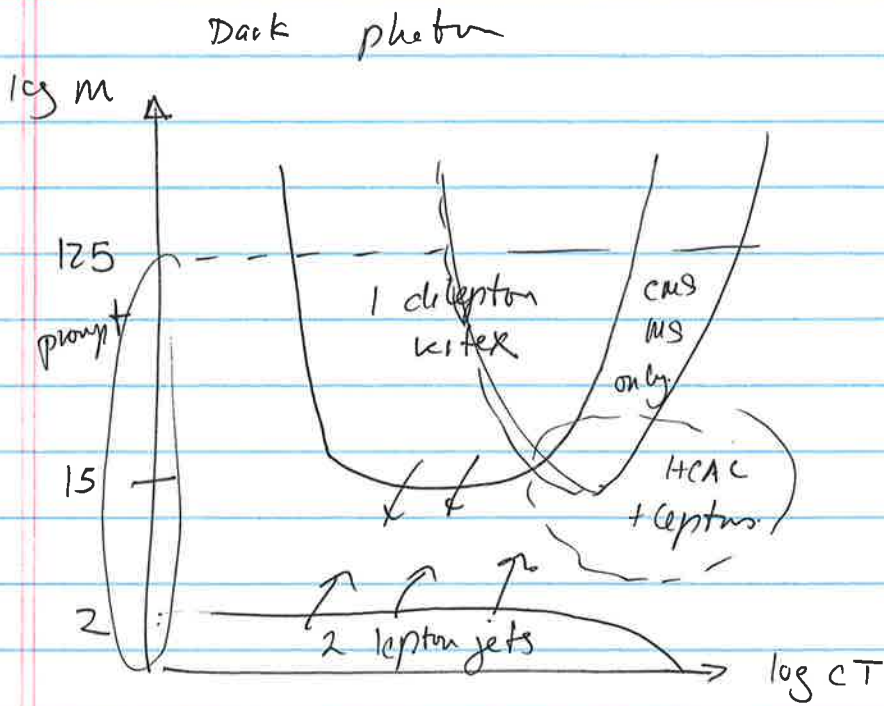 Dark photon
log m
125
prompt
1 dilepton
vertex
CMS
MS
only
15
HCAL
+ leptons
2
2 lepton jets
log cT